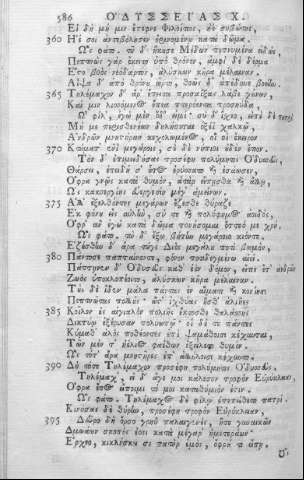 586 ΟΔΥΣΣΕΙΑΣ Χ.
Εἰ δὴ μή μιν ἔπεφνε Φιλοίτιος, ἠὲ συβώτης,
360 Ἠὲ σοὶ ἀντεβόλησεν ὀρινομένῳ κατὰ δῶμα.
Ὣς φάτο. τοῦ δ' ἤκουσε Μέδων πεπνυμένα εἰδώς·
Πεπτηὼς γὰρ ἔκειτο ὑπὸ θρόνον, ἀμφὶ δὲ δέρμα
Ἕστο βοὸς νεόδαρτον, ἀλύσκων κῆρα μέλαιναν.
Αἶψα δ' ἀπὸ θρόνου ὦρτο, θοῶς δ' ἀπέδυνε βοείην.
365 Τηλέμαχον δ' ἄρ' ἔπειτα προσαΐξας λάβε γούνων,
Καί μιν λισσόμενος ἔπεα πτερόεντα προσηύδα·
Ὦ φίλ', ἐγὼ μὲν ὅδ' εἰμί· σὺ δ' ἴσχεο, εἰπὲ δὲ πατρὶ
Μή με περισθενέων δηλήσεται ὀξέϊ χαλκῷ,
Ἀνδρῶν μνηστήρων κεχολωμένος, οἵ οἱ ἔκειρον
370 Κτήματ' ἐνὶ μεγάροις, σὲ δὲ νήπιοι οὐδὲν ἔτιον.
Τὸν δ' ἐπιμειδήσας προσέφη πολύμητις Ὀδυσσεύς,
Θάρσει, ἐπειδή σ' οὗτος ἐρύσσατο καὶ ἐσάωσεν,
Ὄφρα γνῷς κατὰ θυμὸν, ἀτὰρ εἴπῃσθα καὶ ἄλλῳ,
Ὡς κακοεργίης εὐεργεσίη μέγ' ἀμείνων.
375 Ἀλλ' ἐξελθόντες μεγάρων ἕζεσθε θύραζε
Ἐκ φόνου εἰς αὐλὴν, σύ τε καὶ πολύφημος ἀοιδὸς,
Ὄφρ' ἂν ἐγὼ κατὰ δῶμα πονήσομαι ὅττεό με χρή.
Ὣς φάτο. τὼ δ' ἔξω βήτην μεγάροιο κιόντε.
Ἑζέσθην δ' ἄρα τώγε Διὸς μεγάλου ποτὶ βωμὸν,
380 Πάντοσε παπταίνοντε, φόνον ποτιδεγμένω αἰεί.
Πάπτηνεν δ' Ὀδυσεὺς καθ' ἑὸν δόμον, εἴ τις ἔτ' ἀνδρῶν
Ζωὸς ὑποκλοπέοιτο, ἀλύσκων κῆρα μέλαιναν.
Τοὺς δὲ ἴδεν μάλα πάντας ἐν αἵματι καὶ κονίῃσι
Πεπτεῶτας πολλούς· ὥστ' ἰχθύας οὕσθ' ἁλιῆες
385 Κοῖλον ἐς αἰγιαλὸν πολιῆς ἔκτοσθε θαλάσσης
Δικτύῳ ἐξέρυσαν πολυωπῷ· οἱ δέ τε πάντες
Κύμαθ' ἁλὸς ποθέοντες ἐπὶ ψαμάθοισι κέχυνται,
Τῶν μέν τ' ἠέλιος φαέθων ἐξείλετο θυμόν.
Ὣς τότ' ἄρα μνηστῆρες ἐπ' ἀλλήλοισι κέχυντο.
390 Δὴ τότε Τηλέμαχον προσέφη πολύμητις Ὀδυσσεύς,
Τηλέμαχ', εἰ δ' ἄγε μοι κάλεσον τροφὸν Εὐρύκλειαν,
Ὄφρα ἔπος εἴποιμι τό μοι καταθύμιόν ἐστιν.
Ὣς φάτο. Τηλέμαχος δὲ φίλῳ ἐπεπείθετο πατρί.
Κινήσας δὲ θύρην, προσέφη τροφὸν Εὐρύκλειαν,
395 Δεῦρο δὴ ὄρσο γρηῢ παλαιγενὲς, ἥτε γυναικῶν
Δμωάων σκοπός ἐσσι κατὰ μέγαρ' ἡμετεράων·
Ἔρχεο, κικλήσκει σε πατὴρ ἐμὸς, ὄφρα τι εἴπῃ.